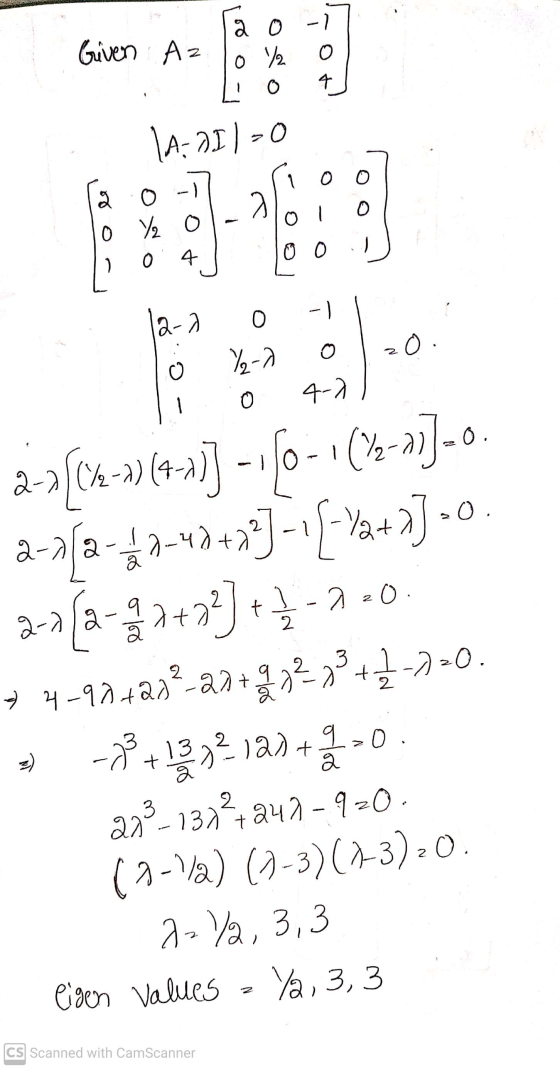 Given A = [2 0 -1
0 1/2 0
1 0 4]
|A-λI| = 0
[2 0 -1
0 1/2 0
1 0 4] - λ [1 0 0
0 1 0
0 0 1]
|2-λ 0 -1
0 1/2-λ 0
1 0 4-λ| = 0.
2-λ[(1/2-λ)(4-λ)] - 1[0-1(1/2-λ)] = 0.
2-λ[2-1/2λ-4λ+λ²] - 1[-1/2+λ] = 0.
2-λ[2-9/2λ+λ²] + 1/2 - λ = 0.
→ 4-9λ+2λ²-2λ+9/2λ²-λ³+1/2-λ=0.
⇒ -λ³+13/2λ²-12λ+9/2=0.
2λ³-13λ²+24λ-9=0.
(λ-1/2) (λ-3)(λ-3)=0.
λ=1/2, 3, 3
Eigen values = 1/2, 3, 3
CS Scanned with CamScanner